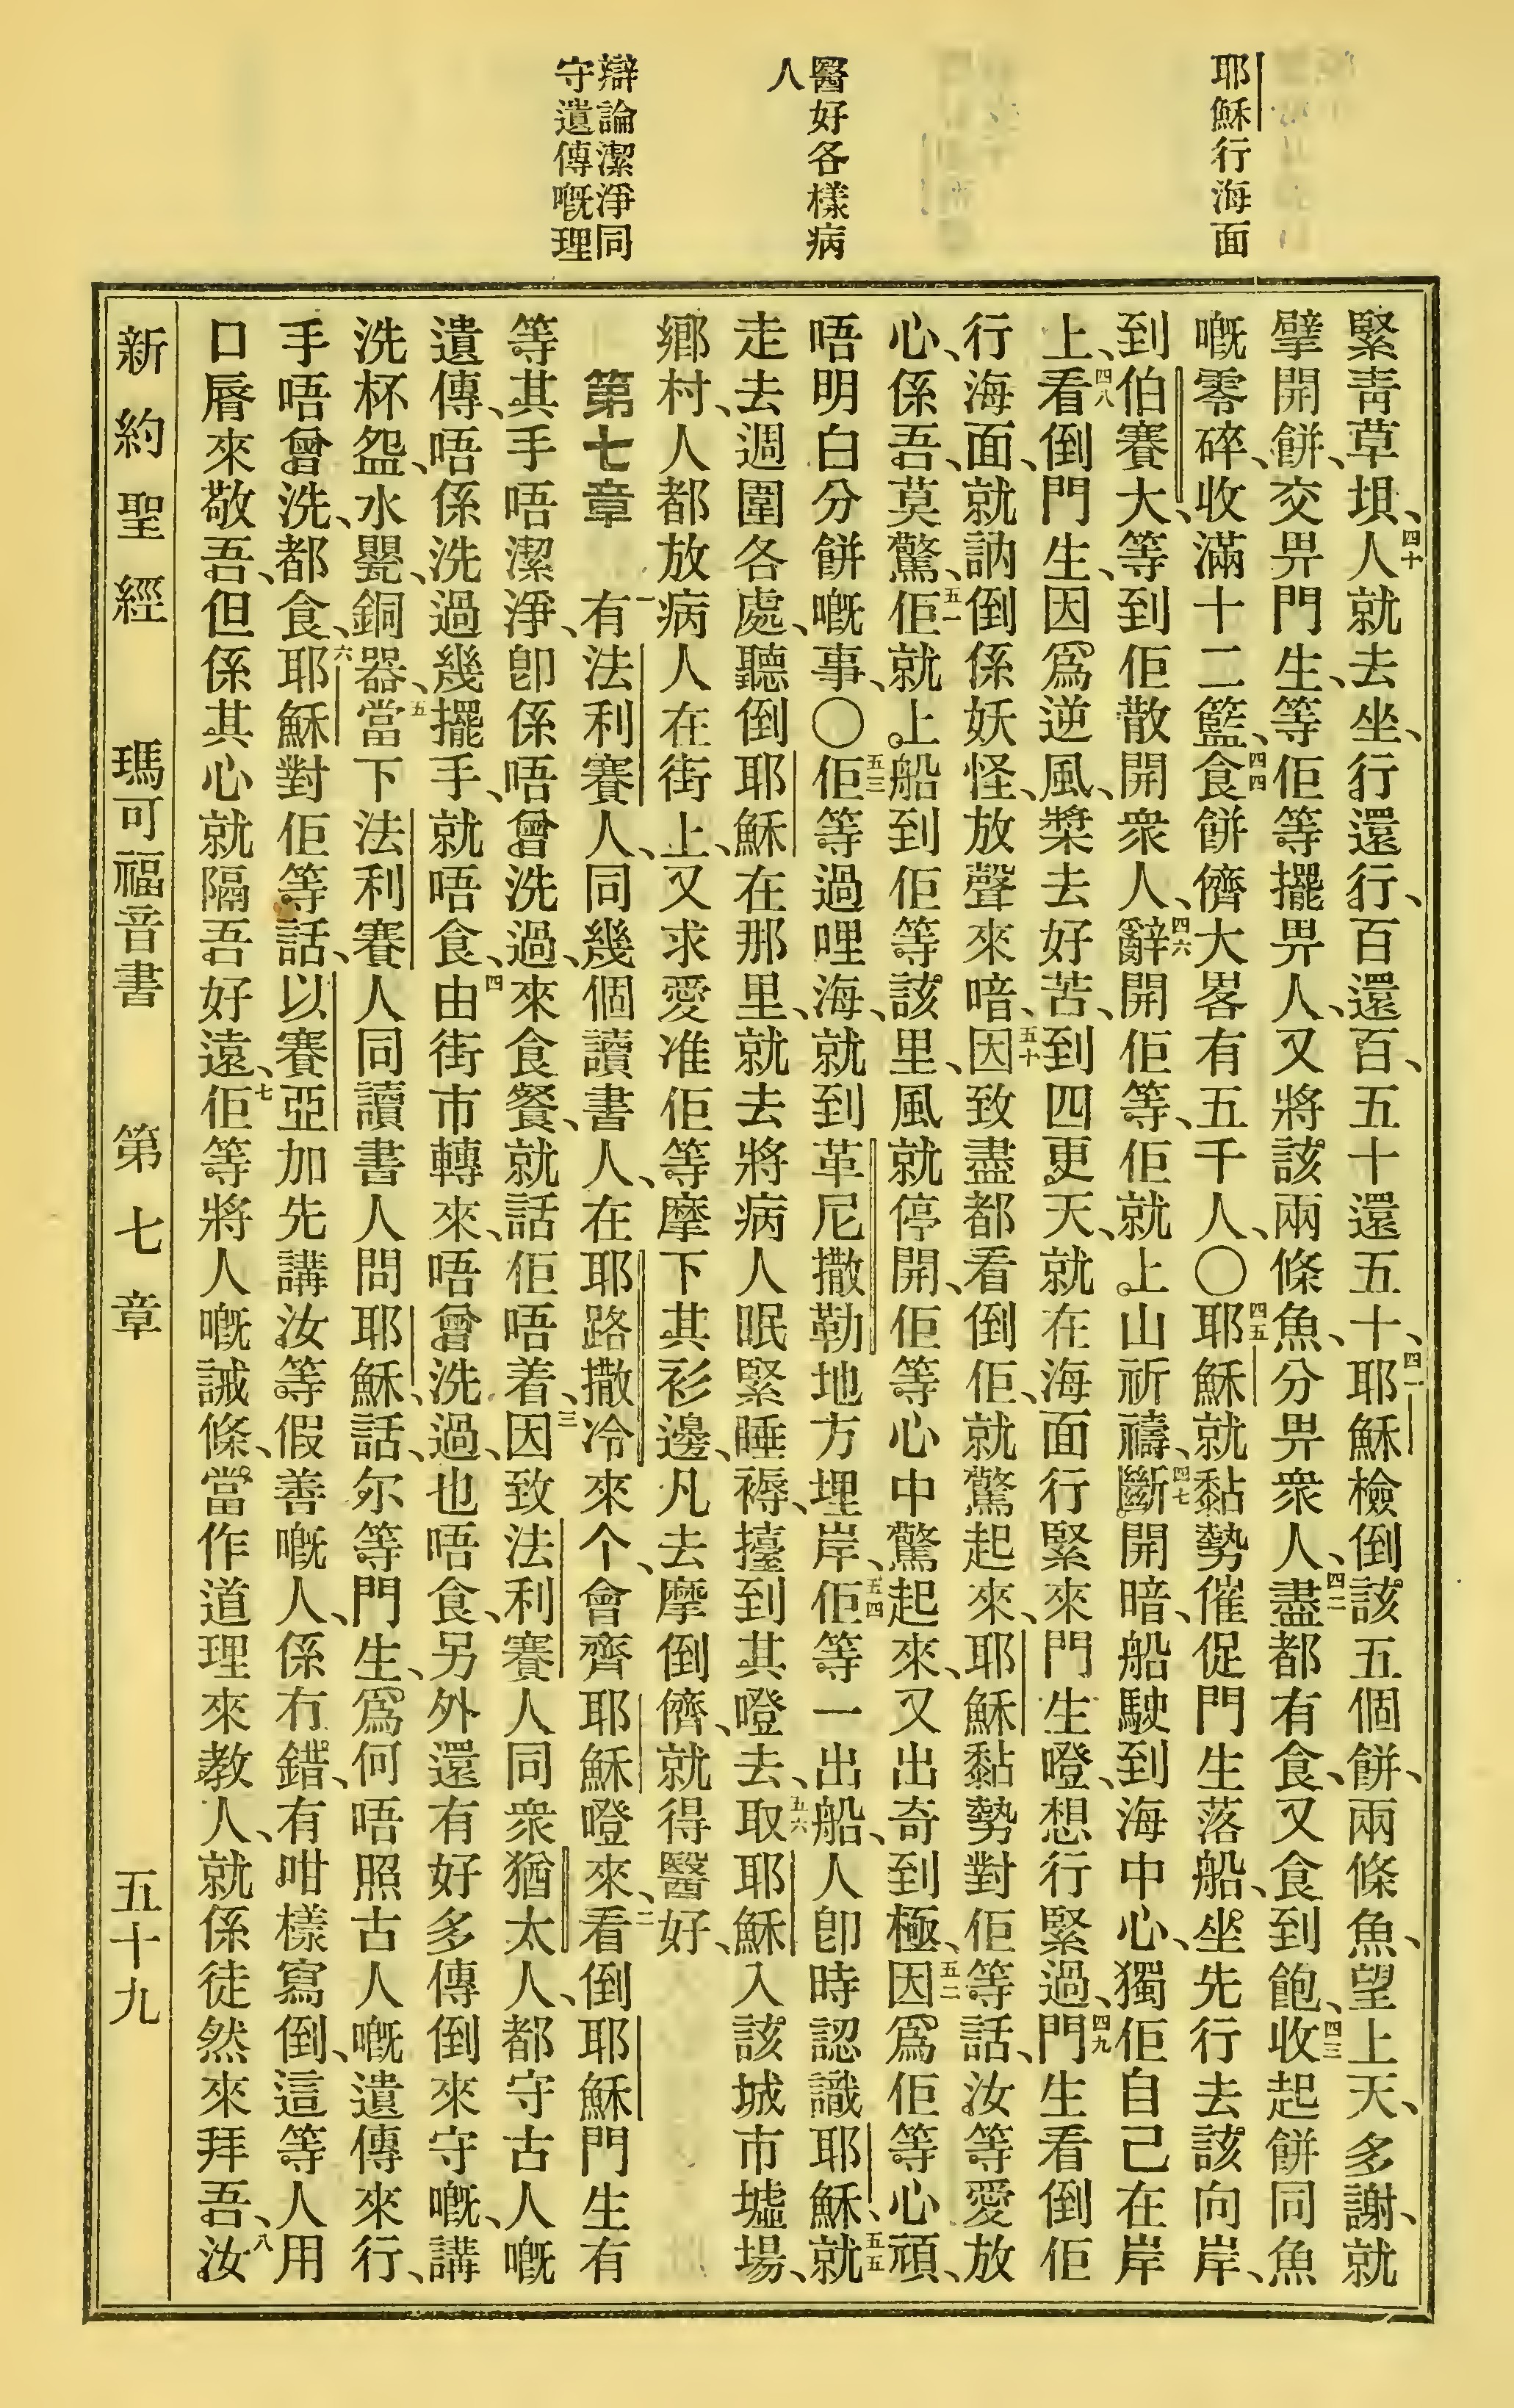 耶穌行海面
醫好各樣病
人
辯論潔淨同
守遺傳嘅理
緊靑草垻、四十人就去坐、行還行、百還百、五十還五十、四一耶穌檢倒該五個餅、兩條魚、望上天、多謝、就
擘開餅、交畀門生、等佢等擺畀人、又將該兩條魚、分畀衆人、四二盡都有食、又食到飽、四三收起餅同魚
嘅零碎、收滿十二籃、四四食餅儕大畧有五千人、〇四五耶穌就黏勢催促門生落船、坐先行去該向岸、
到伯賽大、等到佢散開衆人、四六辭開佢等、佢就上山祈禱、四七斷開暗、船駛到海中心、獨佢自己在岸
上、四八看倒門生、因爲逆風、槳去好苦、到四更天、就在海面行緊來門生嶝、想行緊過、四九門生看倒佢
行海面、就訥倒係妖怪、放聲來喑、五十因致盡都看倒佢、就驚起來、耶穌黏勢對佢等話、汝等愛放
心、係吾、莫驚、五一佢就上船到佢等該里、風就停開、佢等心中驚起來、又出奇到極、五二因爲佢等心頑、
唔明白分餅嘅事、〇五三佢等過哩海、就到革尼撒勒地方埋岸、五四佢等一出船、人卽時認識耶穌、五五就
走去週圍各處、聽倒耶穌在那里、就去將病人眠緊睡褥、擡到其嶝去、五六取耶穌入該城市墟場、
鄉村、人都放病人在街上、又求愛准佢等摩下其衫邊、凡去摩倒儕、就得醫好、
第七章 一有法利賽人、同幾個讀書人、在耶路撒冷來个、會齊耶穌嶝來、二看倒耶穌門生有
等其手唔潔淨、卽係唔曾洗過、來食餐、就話佢唔着、三因致法利賽人同衆猶太人、都守古人嘅
遺傳、唔係洗過幾擺手、就唔食、四由街市轉來、唔曾洗過、也唔食、另外還有好多傳倒來守嘅、講
洗杯盌、水甖、銅器、五當下法利賽人同讀書人問耶穌、話、尔等門生、爲何唔照古人嘅遺傳來行、
手唔曾洗、都食、六耶穌對佢等話、以賽亞加先講汝等假善嘅人、係冇錯、有咁樣寫倒、這等人用
口脣來敬吾、但係其心就隔吾好遠、七佢等將人嘅誡條、當作道理來教人、就係徒然來拜吾、八汝
新約聖經 瑪可福音書 第七章 五十九